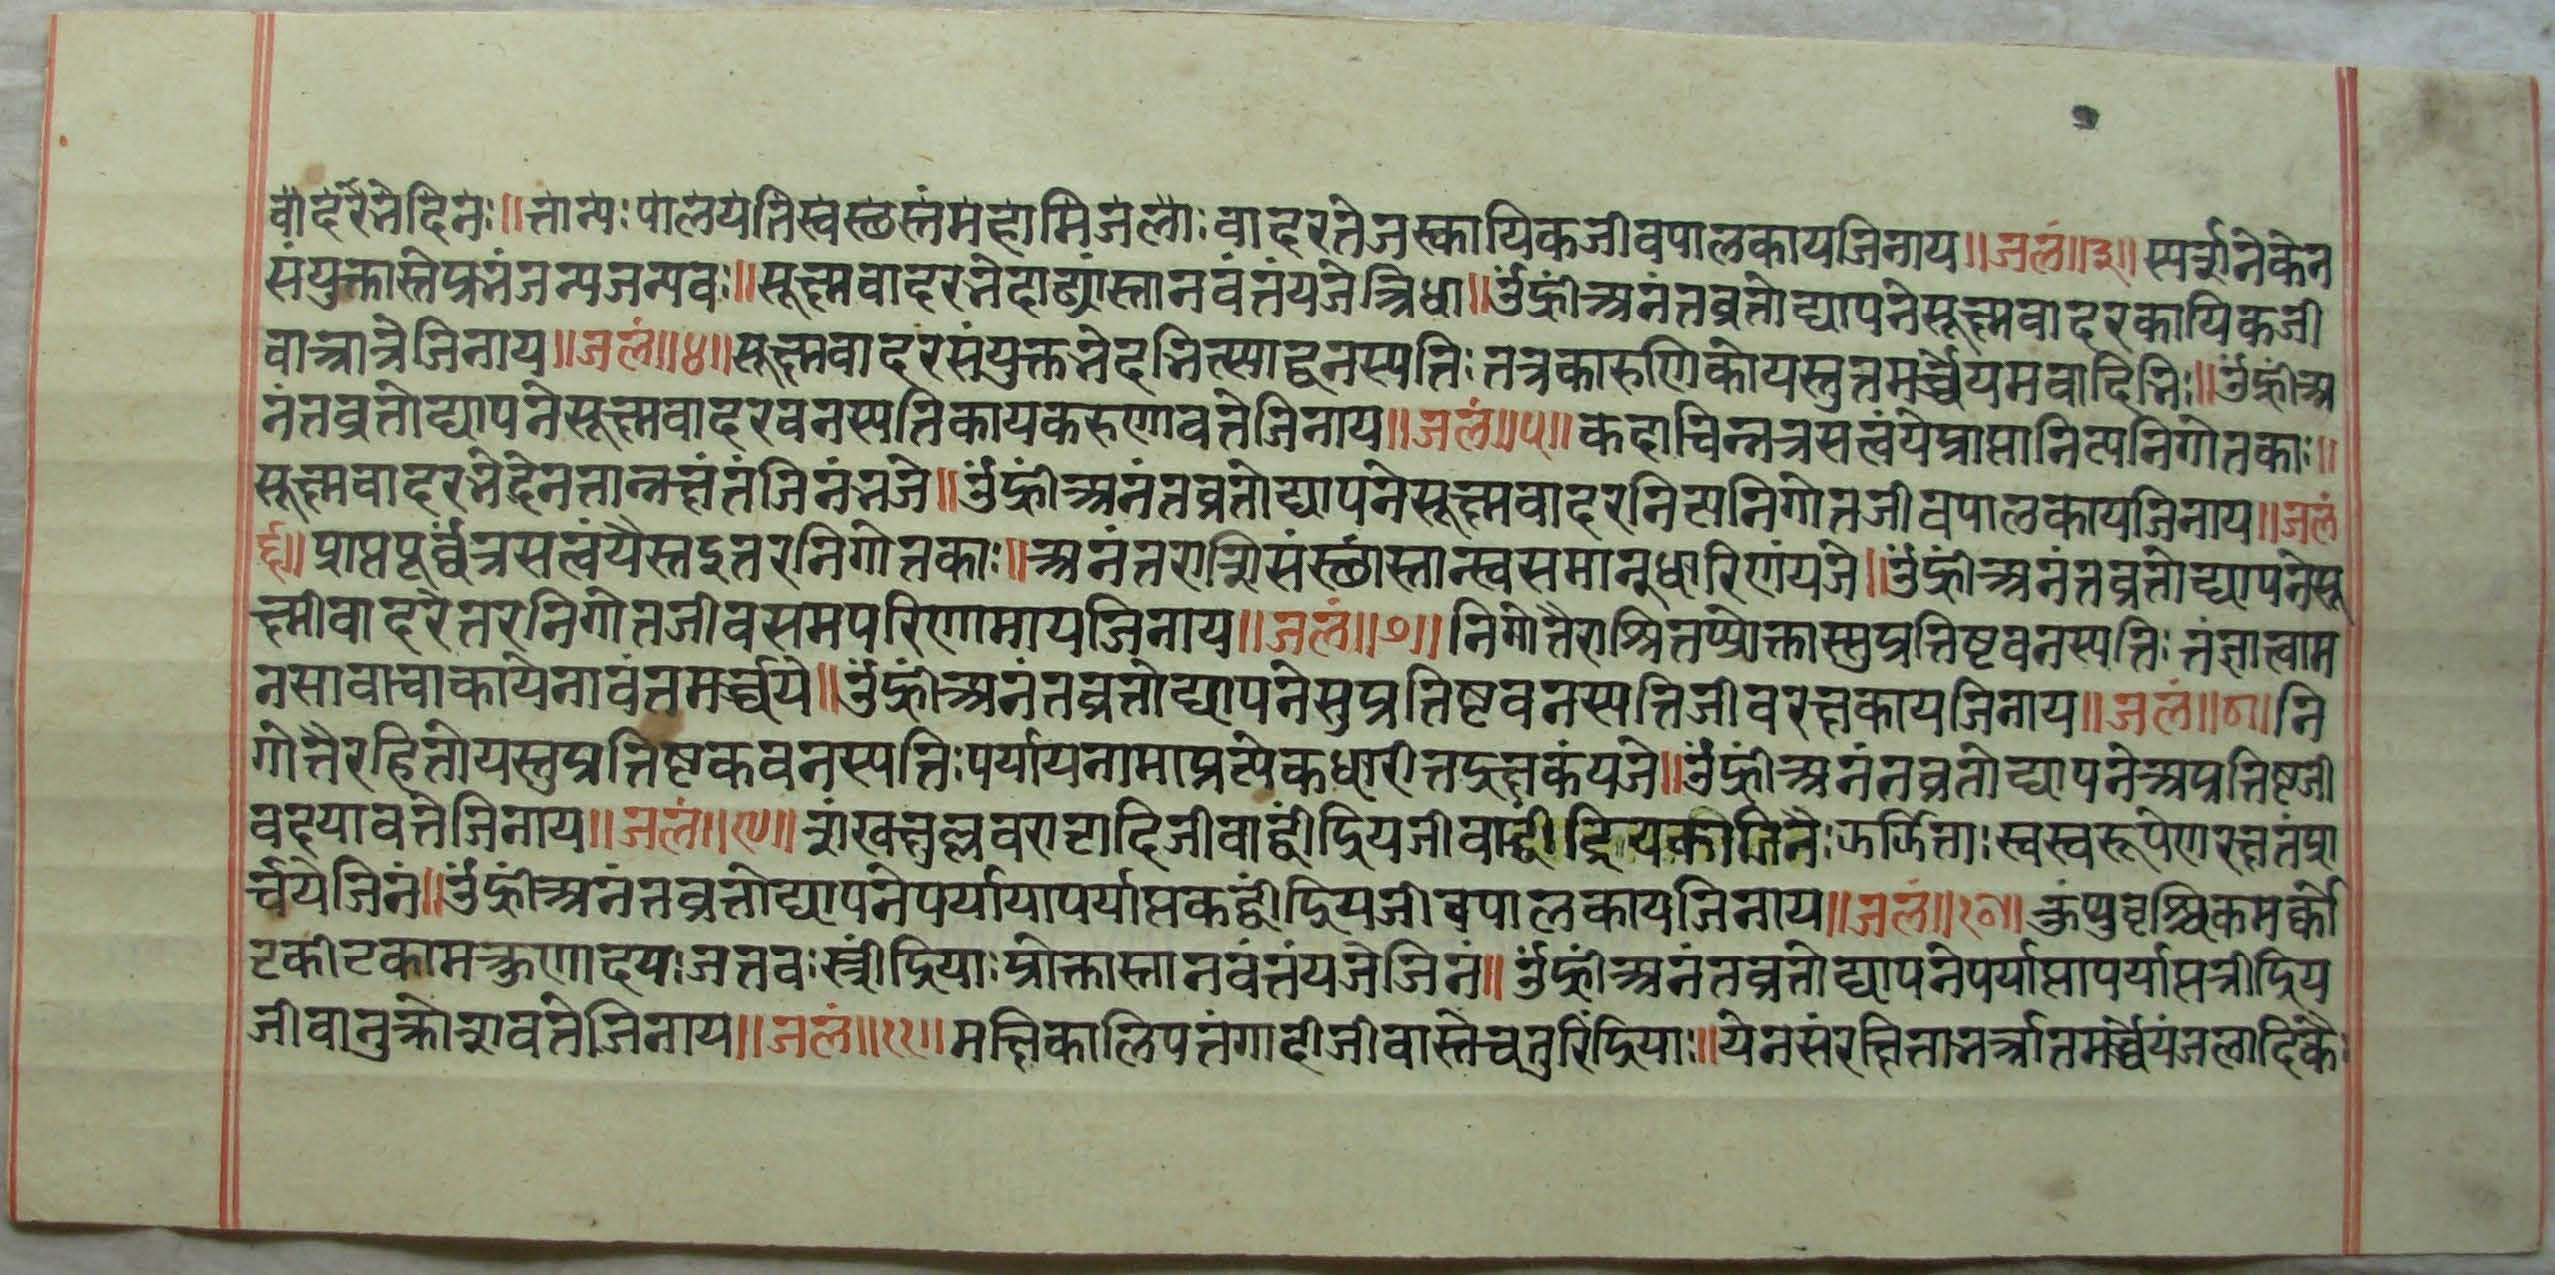 वादरभेदिनः॥तान्यः पालयतिस्वस्छस्तंमहामिजलाः वादरतेजस्कायिकजीवपालकायजिनाय॥जलं॥३॥स्पर्शनेकेन
संयुक्तास्तेप्रभंजन्यजन्यवः॥सूक्ष्मवादरभेदाढ्यांस्तानवंतंयजेत्रिधा॥ॐह्रींअनंतव्रतोद्यापनेसूक्ष्मवादरकायिकजी
वात्रात्रेजिनाय॥जलं॥४॥सूक्ष्मवादरसंयुक्तभेदभित्स्याद्वनस्पतिः तत्रकारुणिकोयस्तुतमर्च्चेयमवादिभिः॥ॐह्रींअ
नंतव्रतोद्यापनेसूक्ष्मवादरवनस्पतिकायकरुणावतेजिनाय॥जलं॥५॥कदाचिन्नत्रसत्वंयेप्राप्तानित्यनिगोतकाः॥
सूक्ष्मवादरभेदेनतान्नक्षंतंजिनंभजे॥ॐह्रींअनंतव्रतोद्यापनेसूक्ष्मवादरनित्यनिगोतजीवपालकायजिनाय॥जलं
६॥प्राप्तपूर्व्वंत्रसत्वंयैस्तइतरनिगोतकाः॥अनंतराशिसंस्छांस्तान्स्वसमानुधारिणंयजे॥ॐह्रींअनंतव्रतोद्यापनेसू
क्ष्मीवादरेतरनिगोतजीवसमपरिणामायजिनाय॥जलं॥७॥निगोतैराश्रितप्प्रोक्तास्सुप्रतिष्टवनस्पतिः तंज्ञात्वाम
नसावाचाकायेनावंतमर्च्चये॥ॐह्रींअनंतव्रतोद्यापनेसुप्रतिष्टवनस्पतिजीवरक्षकायजिनाय॥जलं॥८॥नि
गोतैरहितोयस्तुप्रतिष्टकवनस्पतिः पर्यायनामाप्रत्येकधारीतद्रक्षकंयजे॥ॐह्रींअनंतव्रतोद्यापनेअप्रतिष्टजी
वदयावतेजिनाय॥जलं॥९॥शंखक्षुल्लवराटादिजीवाद्वींद्रियजीवाद्वीद्रियकीर्तिनैः स्वस्वरूपेणरक्षतंप्रा
र्च्चयेजिनं॥ॐह्रींअनंतव्रतोद्यापनेपर्यायापर्याप्तकद्वींद्रियजीवपालकायजिनाय॥जलं॥१०॥कुंथुवृश्चिकमर्को
टकीटकामत्कुणादयः जतवः स्त्रींद्रियाः प्रोक्तास्तानवंतंयजेजिनं॥ॐह्रींअनंतव्रतोद्यापनेपर्याप्तापर्याप्तत्रीद्रिय
जीवानुक्रोशवतेजिनाय॥जलं॥११॥मक्षिकालिपतंगादीजीवास्तेचतुरिंद्रियाः॥येनसंरक्षितानर्त्रातमर्च्चेयंजलादिकैः